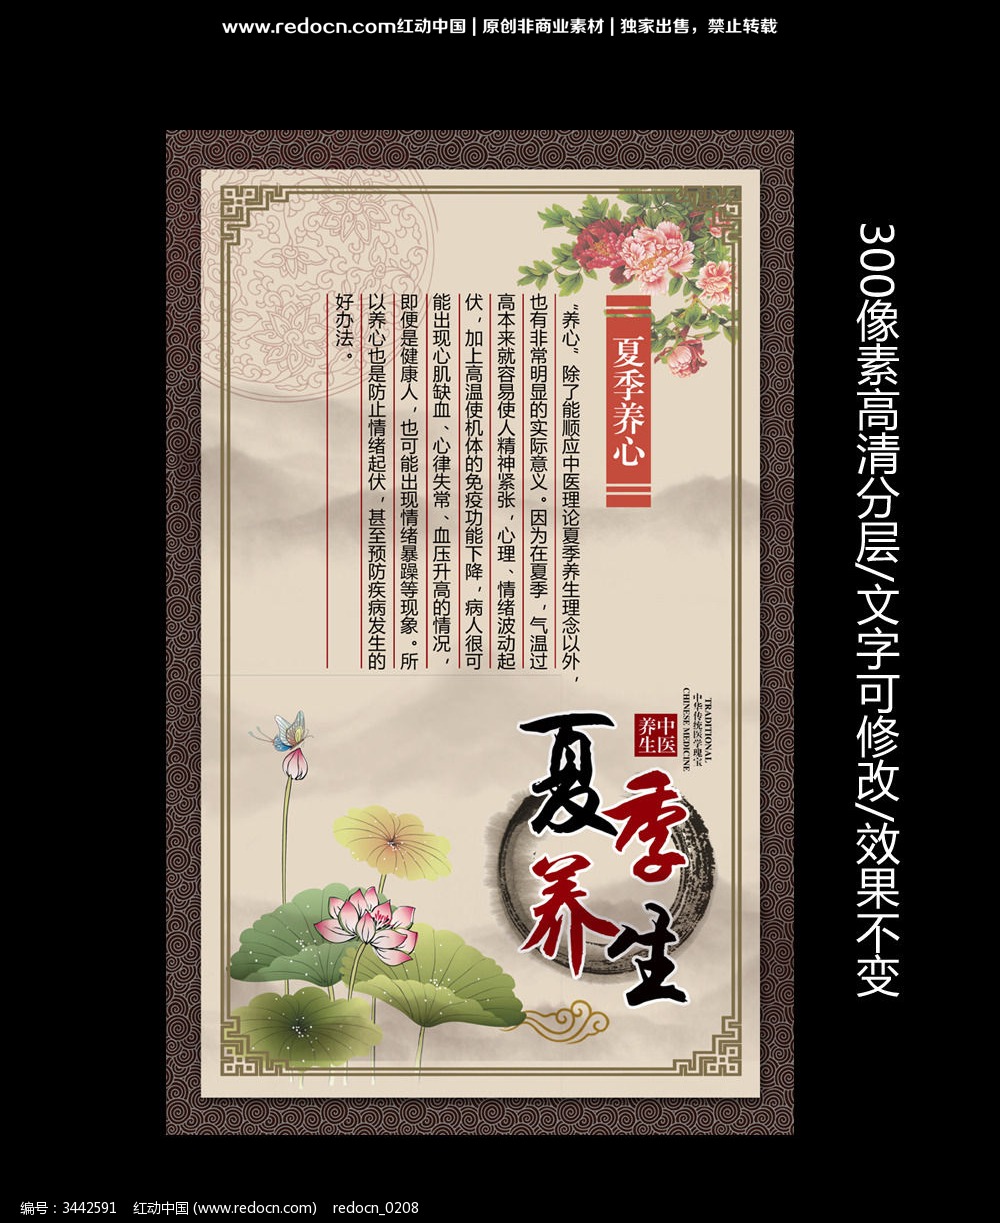 www.redocn.com红动中国 | 原创非商业素材 | 独家出售，禁止转载
夏季养心
“养心”除了能顺应中医理论夏季养生理念以外，
也有非常明显的实际意义。因为在夏季，气温过
高本来就容易使人精神紧张，心理、情绪波动起
伏，加上高温使机体的免疫功能下降，病人很可
能出现心肌缺血、心律失常、血压升高的情况，
即便是健康人，也可能出现情绪暴躁等现象。所
以养心也是防止情绪起伏，甚至预防疾病发生的
好办法。
TRADITIONAL
中华传统医学瑰宝
CHINESE MEDICINE
中医
养生
夏季
养生
300像素高清分层/文字可修改/效果不变
编号：3442591 红动中国 (www.redocn.com) redocn_0208